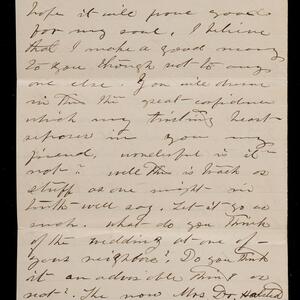 hope it will prove good
for my soul, I believe
that I make a good many
to you though not to any
one else. You will discern
in this the great confidence
which my trusting heart
reposes in you my
friend, wonderful is it
not? well this is trash or
stuff as one might in
truth well say. Let it go as
such. What do you think
of the wedding at one of
your neighbors? Do you think
it an advisable thing or
not? The now Mrs Dr